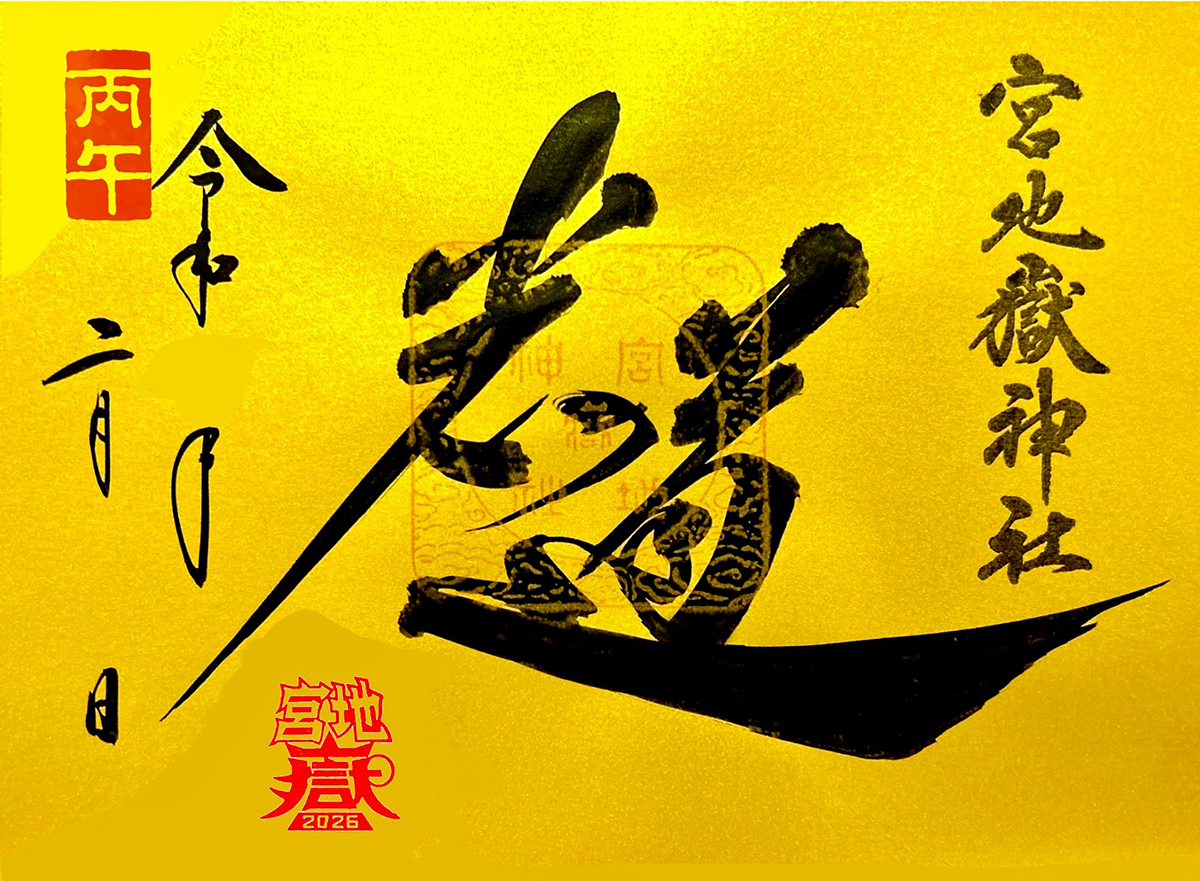 宮地嶽神社
光の道
宮地
嶽神社
令和
二月 日
丙午
宮地
嶽
2026